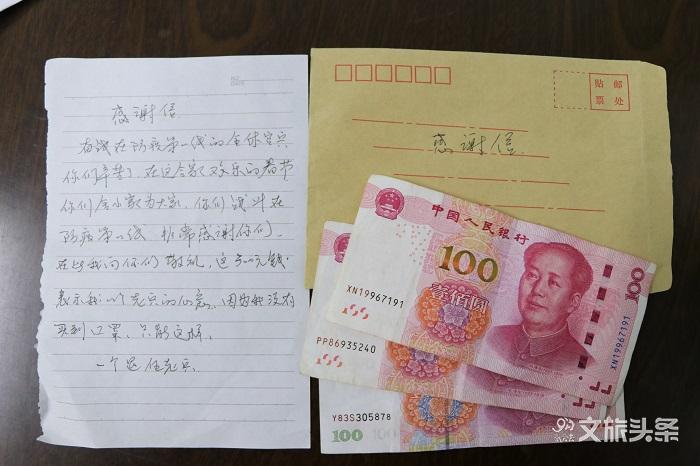 感谢信
奋战在防疫第一线的全体官兵
你们辛苦了,在这合家欢乐的春节
你们舍小家为大家,你们战斗在
防疫第一线,非常感谢你们。
在此我向你们敬礼,这300元钱
表示我一个老兵的心意。因为我没有
买到口罩,只能这样。
一个退伍老兵
贴邮
票处
感谢信
中国人民银行
100
壹佰圆
XN19967191
100
XN19967191
PP86935240
Y83S305878
100
文旅头条